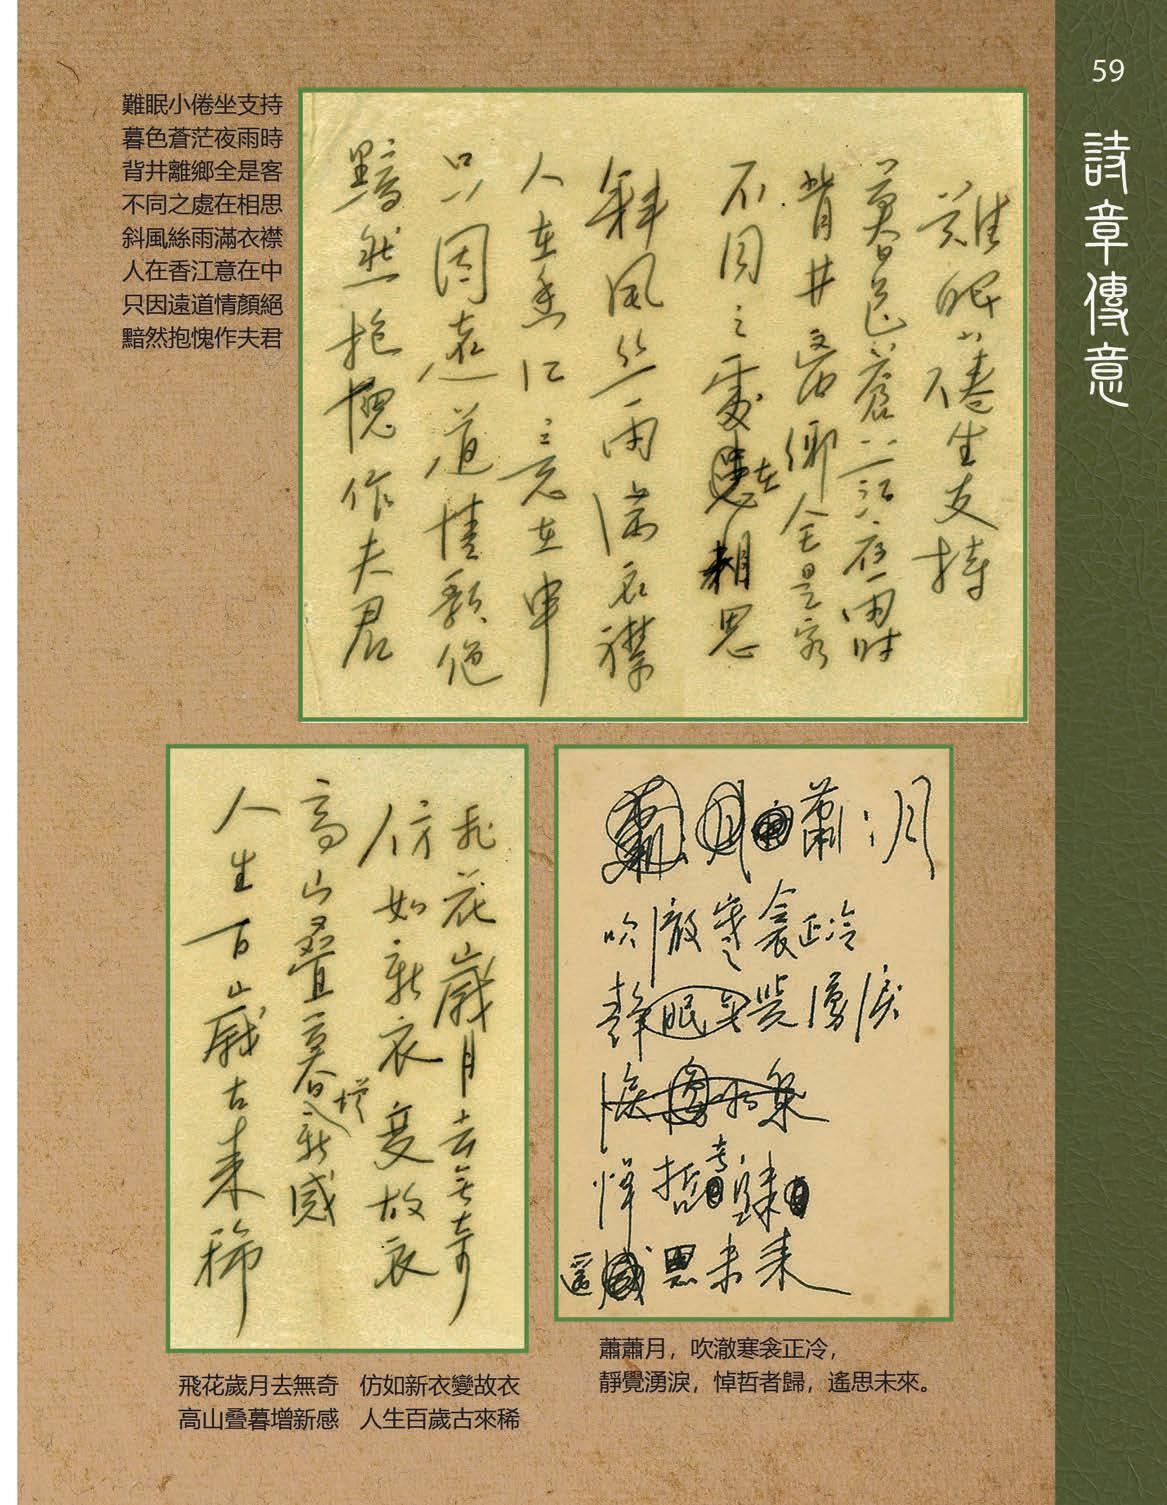 59
詩章傳意
難眠小倦坐支持
暮色蒼茫夜雨時
背井離鄉全是客
不同之處在相思
斜風絲雨滿衣襟
人在香江意在中
只因遠道情顏絕
黯然抱愧作夫君
難眠小倦坐支持
暮色蒼茫夜雨時
背井離鄉全是客
不同之處在相思
斜風絲雨滿衣襟
人在香江意在中
只因遠道情顏絕
黯然抱愧作夫君
飛花歲月去無奇
仿如新衣變故衣
高山叠暮增新感
人生百歲古來稀
飛花歲月去無奇　仿如新衣變故衣
高山叠暮增新感　人生百歲古來稀
蕭:月
吹澈寒衾正冷
靜眠覺湧淚
悼哲者歸
遙思未來
蕭蕭月，吹澈寒衾正冷，
靜覺湧淚，悼哲者歸，遙思未來。